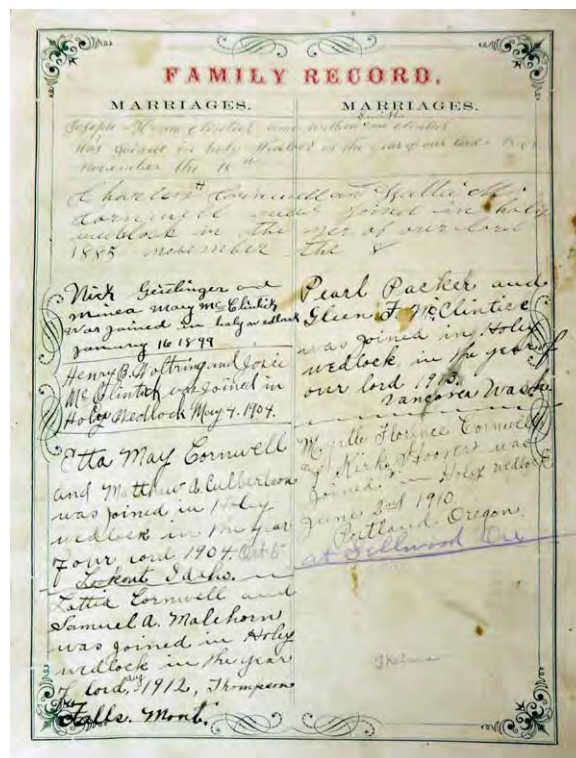 FAMILY RECORD.
MARRIAGES.
MARRIAGES.
Joseph
was joined in holy wedlock in the year of our lord
november the 18th
Charles H Cornwell and Hattie M.
Cornwell was joind in holy
wedlock in the yer of our lord
1885 november the 8
Nick Geislinger and
Minea May McClintick
Was joined in holy wedlock
january 16 1899
Henry B. Holtring and Josie
McClintick was joined in
Holy Wedlock May 4. 1904.
Etta May Cornwell
and Matthew A. Culbertson
was joined in Holey
wedlock in the year
of our lord 1904 Oct 5
Lookout Idaho.
Lottie Cornwell and
Samuel A. Malehorn
was joined in Holey
wedlock in the year
of lord, 1912, Thompson
Falls. Mont.
Pearl Packer and
Gleen F. McClintice
was joined in Holey
wedlock, in the year of
our lord 1913.
Vancover Wash
Myrtle Florence Cornwell
Kirk Hoover was
Joined in Holey wedlock
June 2nd 1910.
Portland Oregon
at Sellwood Ore
Thelma